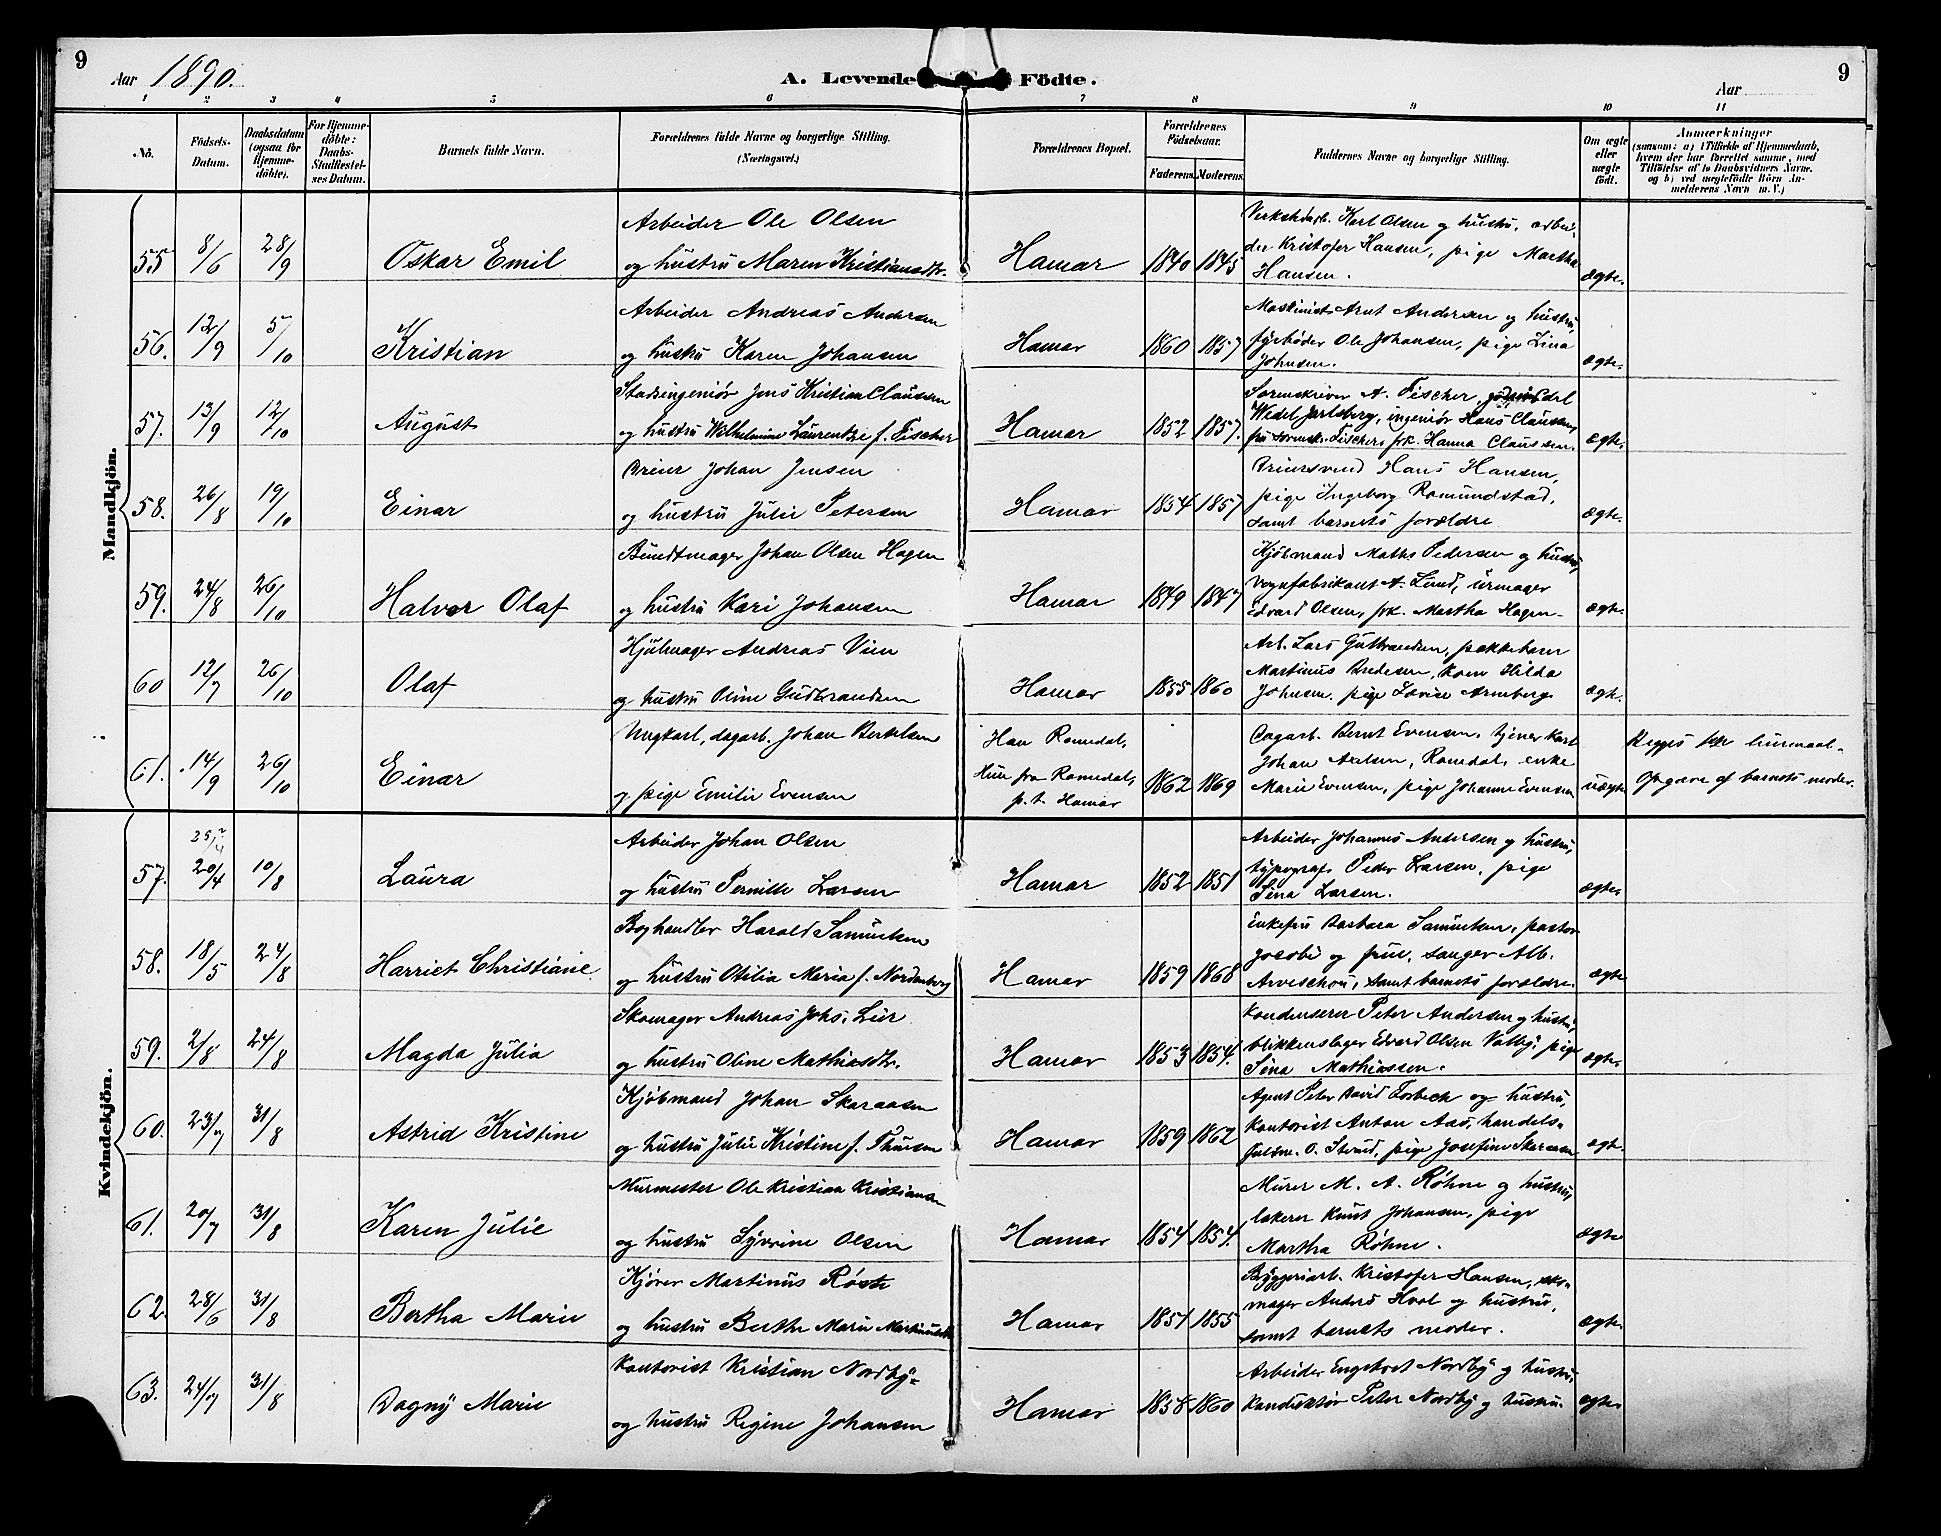 9
Aar 1890.
A. Levende Födte.
Aar
9
1 2 3 4 5 6 7 8 9 10 11
No.
Födsels-Datum.
Daabsdatum (ogsaa for Hjemme-döbte).
For Hjemme-döbte: Daabs-Stadfæstel-ses Datum.
Barnets fulde Navn.
Forældrenes fulde Navne og borgerlige Stilling.
(Næringsvei.)
Forældrenes Bopæl.
Forældrenes Födselsaar.
Faderens. Moderens.
Faddernes Navne og borgerlige Stilling.
Om ægte eller uægte födt.
Anmærkninger
(saasom: a) i Tilfælde af Hjemmedaab, hvem der har forrettet samme, med Tilföielse af to Daabsvidners Navne. og b) ved uægtefödte Börn An-melderens Navn m. V.)
Mandkjön.
55 8/6 28/9 Oskar Emil
Arbeider Ole Olsen
og hustru Maren Kristiansdtr.
Hamar 1840 1845
Verkstedarb. Karl Olsen og hustru, arbei-
der Kristofer Hansen, pige Martha
Hansen.
ægte.
56. 12/9 5/10 Kristian
Arbeider Andreas Andersen
og hustru Karen Johansen
Hamar 1860 1857
Maskinist Arnt Andersen og hustru,
fyrbøder Ole Johansen, pige Lina
Johnsen.
ægte.
57. 13/9 12/10 August
Stadsingeniør Jens Kristian Claussen
og hustru Wilhelmine Laurentze f. Fischer
Hamar 1852 1857.
Sorenskriver A. Fischer,
Wedel Jarlsberg, ingeniør Hans Claussen,
fru Fischer, frk. Hanna Claussen.
ægte.
58. 26/8 19/10 Einar
Dreier Johan Jensen
og hustru Julie Petersen
Hamar 1854 1857
Dreiersvend Hans Hansen,
pige Ingeborg Romundstad,
samt barnets forældre
ægte.
59. 24/8 26/10 Halvor Olaf
Bundtmager Johan Olsen Hagen
og hustru Kari Johansen
Hamar 1849 1847
Kjøbmand Maths Pedersen og hustru,
vognfabrikant A. Lund, urmager
Edvard Olsen, frk. Martha Hagen
ægte.
60 12/7 26/10 Olaf
Hjulmager Andreas Vien
og hustru Oline Gudbrandsen
Hamar 1855 1860
Arb. Lars Gulbrandsen,
Martinus Andersen, Hilda
Johnsen, pige Lovise Arneberg
ægte.
61. 14/9 26/10 Einar
Ungkarl, dagarb. Johan Bertelsen
og pige Emilie Evensen
Han Romedal,
Hun fra Romedal,
p. t. Hamar
1862 1869
Dagarb. Bernt Evensen, tjener Karl
Johan Axelsen, Romedal, enke
Marie Evensen, pige Johanne Evensen
uægte
Opgave af barnets moder.
Kvindekjön.
57. 20/4 10/8 Laura
Arbeider Johan Olsen
og hustru Pernille Larsen
Hamar 1852 1851
Arbeider Johannes Andersen og hustru,
typograf Peder Larsen, pige
Sina Larsen.
ægte.
58. 18/5 24/8 Harriet Christiane
Boghandler Harald Samuelsen
og hustru Otilia Maria f. Nordenberg
Hamar 1859 1868
Enkefru Barbara Samuelsen, pastor
Jacobi og frue, sanger Alb.
Arveschou, samt barnets forældre.
ægte
59. 2/8 24/8 Magda Julia
Skomager Andreas Johs. Lier
og hustru Oline Mathiasdtr.
Hamar 1853 1854.
Kondenserer Peter Andersen og hustru,
blikkenslager Edvard Olsen Valby, pige
Sina Mathiassen.
ægte
60. 23/7 31/8 Astrid Kristine
Kjøbmand Johan Skaraasen
og hustru Julie Kristine f. Thuesen
Hamar 1859 1862
Agent Peter David Torbech og hustru,
kontorist Anton Aas, handels-
fuldm. O. Strud, pige Josefine Skaraasen
ægte.
61. 20/7 31/8 Karen Julie
Murmester Ole Kristian Kristiansen
og hustru Syverine Olsen
Hamar 1854 1854.
Murer M. A. Røhne og hustru,
lakerer Knut Johansen, pige
Martha Røhne.
ægte
62. 28/6 31/8 Bertha Marie
Kjører Martinus Røste
og hustru Berthe Marie Martinusdtr.
Hamar 1851 1855
Byggeriarb. Kristofer Hansen, sko-
mager Anders Hval og hustru,
samt barnets moder.
ægte.
63. 24/7 31/8 Dagny Marie
Kontorist Kristian Nordby
og hustru Regine Johansen
Hamar 1858 1860
Arbeider Engebret Nordby og hustru
Konduktør Peter Nordby og hustru.
ægte